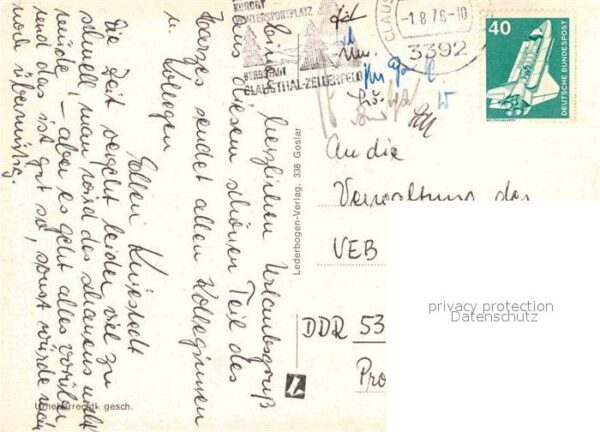 KURORT
WINTERSPORTPLATZ
BERGSTADT
CLAUSTHAL-ZELLERFELD
CLAUS
-1.8.76-10
3392
40
DEUTSCHE BUNDESPOST
Einen herzlichen Urlaubsgruß
aus diesem schönen Teil des
Harzes sendet allen Kolleginnen
u. Kollegen
Ellen
Die Zeit vergeht leider viel zu
schnell, man wird des schauens nicht
müde, – aber es geht alles vorüber
und das ist gut so, sonst würde man
noch übermütig.
Lederbogen-Verlag, 338 Goslar
Urheberrechtl. gesch.
An die
Verwaltung des
VEB
DDR 53
Pro
privacy protection
Datenschutz